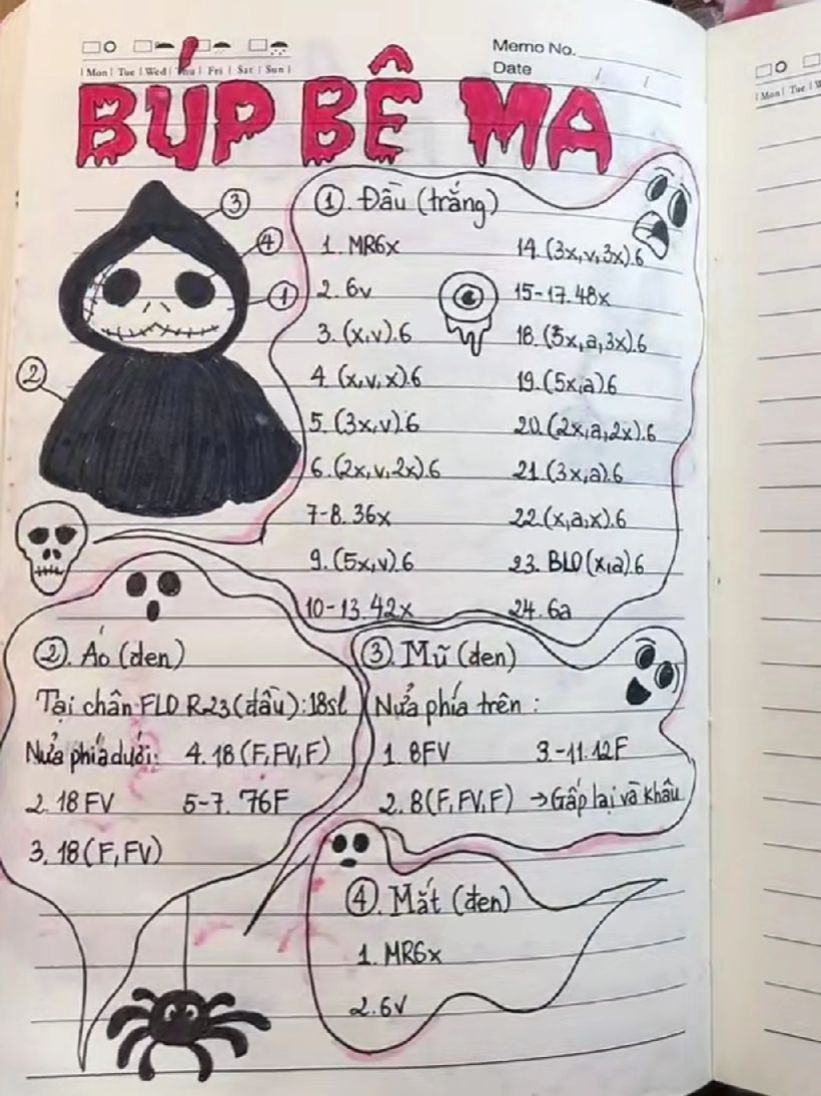 Memo No.
Mon | Tue | Wed | Thu | Fri | Sat | Sun |
Date / /
BÚP BÊ MA
③
④
①
②
①. Đầu (trắng)
1. MR6x
2. 6v
3. (x,v).6
4. (x,v,x).6
5. (3x,v).6
6. (2x,v,2x).6
7-8. 36x
9. (5x,v).6
10-13. 42x
14. (3x,v,3x).6
15-17. 48x
18. (3x,a,3x).6
19. (5x,a).6
20. (2x,a,2x).6
21. (3x,a).6
22. (x,a,x).6
23. BLO (x,a).6
24. 6a
②. Áo (đen)
Tại chân FLO R23 (đầu): 18sl
Nửa phía dưới:
2. 18 FV
3. 18 (F, FV)
4. 18 (F, FV, F)
5-7. 76F
③. Mũ (đen)
Nửa phía trên :
1. 8FV
2. 8 (F, FV, F)
3-11. 12F
→ Gấp lại và khâu
④. Mắt (đen)
1. MR6x
2. 6V
Mon | Tue